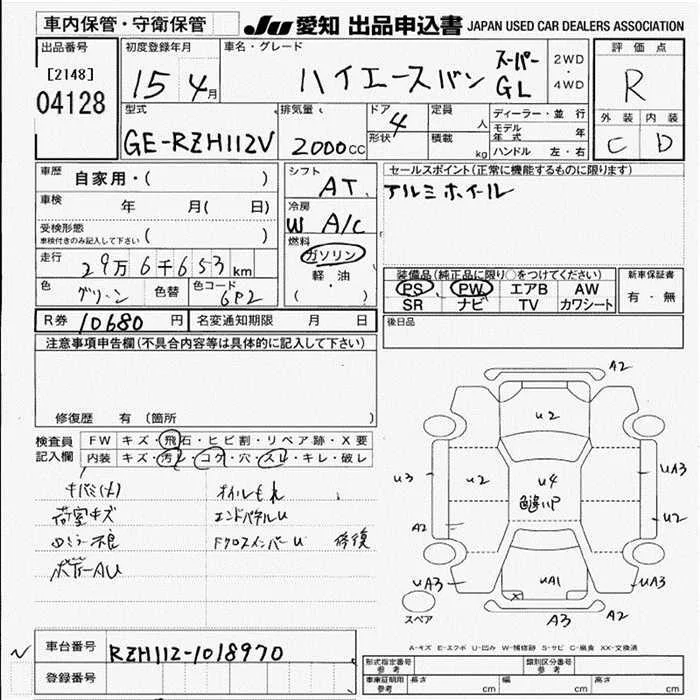 車内保管・守衛保管
JU 愛知 出品申込書 JAPAN USED CAR DEALERS ASSOCIATION
出品番号 初度登録年月 車名・グレード 評価点
[2148] 15年4月 ハイエースバン スーパーGL 2WD・4WD R
04128
型式 排気量 ドア 4 定員 人 ディーラー・並行 外装 内装
GE-RZH112V 2000cc 形状 積載 kg モデル年式 年 C D
ハンドル 左・右
車歴 自家用・( ) シフト AT セールスポイント(正常に機能するものに限ります)
車検 年 月( 日) 冷房 W A/C アルミホイール
受検形態 車検付きのみ記入して下さい ( ) 燃料 ガソリン
走行 29万6千653km 軽・油 装備品(純正品に限り○をつけてください) 新車保証書
色 グリーン 色替 色コード 6P2 ( ) PS PW エアB AW 有・無
SR ナビ TV カワシート
R券 10680円 名変通知期限 月 日 後日品
注意事項申告欄(不具合内容等は具体的に記入して下さい)
修復歴 有 (箇所 )
検査員 FW キズ・飛石・ヒビ割・リペア跡・X要
記入欄 内装 キズ・汚レ・コゲ・穴・スレ・キレ・破レ
オイルもれ
荷室キズ エンドパネルU
ロミラー不良 Fクロスメンバーu 修復
ボデーAU
A2
U2
U3 U2 U4 UA3
色違いP U2
A2
UA3 UA1 UA3
スペア A3 A2
A-キズ E-エクボ U-凹み W-補修跡 S-サビ C-腐食 XX-交換済
車台番号 RZH112-1018970
登録番号
形式指定番号 参考 類別区分番号 参考
車庫証明用 参考 長さ cm 幅 cm 高さ cm